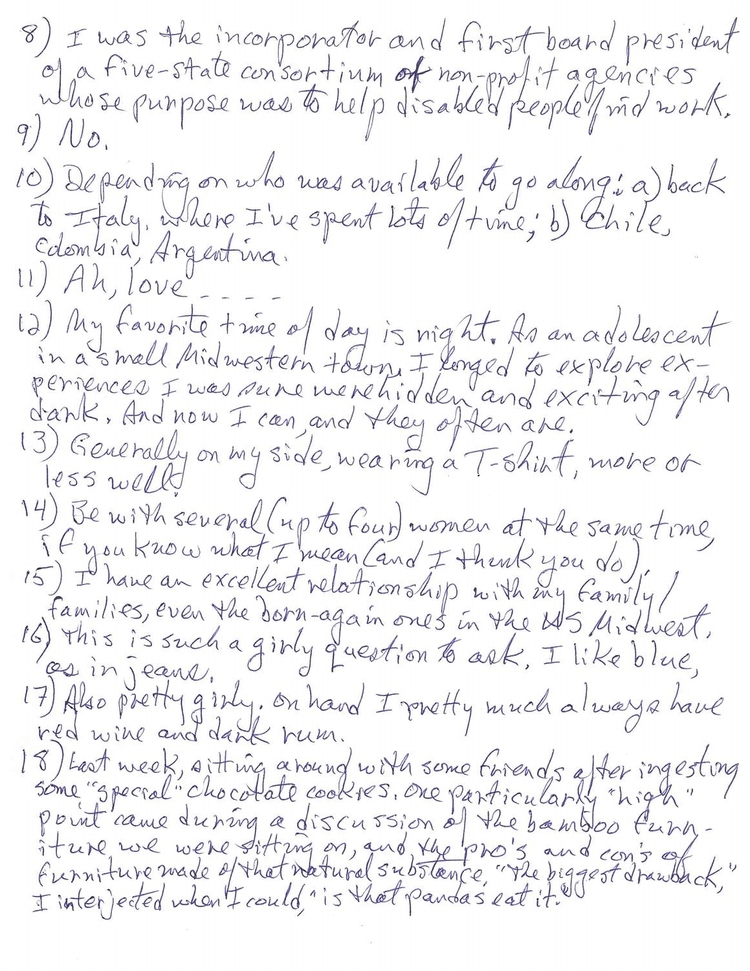 8) I was the incorporator and first board president
of a five-state consortium of non-profit agencies
whose purpose was to help disabled people find work.
9) No.
10) Depending on who was available to go along: a) back
to Italy, where I've spent lots of time; b) Chile,
Colombia, Argentina.
11) Ah, love - - - - -
12) My favorite time of day is night. As an adolescent
in a small Midwestern town, I longed to explore ex-
periences I was sure were hidden and exciting after
dark. And now I can, and they often are.
13) Generally on my side, wearing a T-shirt, more or
less well.
14) Be with several (up to four) women at the same time,
if you know what I mean (and I think you do).
15) I have an excellent relationship with my family/
families, even the born-again ones in the US Midwest.
16) This is such a girly question to ask. I like blue,
as in jeans.
17) Also pretty girly. On hand I pretty much always have
red wine and dark rum.
18) Last week, sitting around with some friends after ingesting
some "special" chocolate cookies. One particularly "high"
point came during a discussion of the bamboo furn-
iture we were sitting on, and the pro's and con's of
furniture made of that natural substance. "The biggest drawback,"
I interjected when I could, "is that pandas eat it."